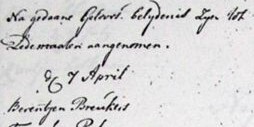 Na gedaane Geloofs belydenis Zyn tot
Ledemaaten aangenomen.
7 April
Berentzen